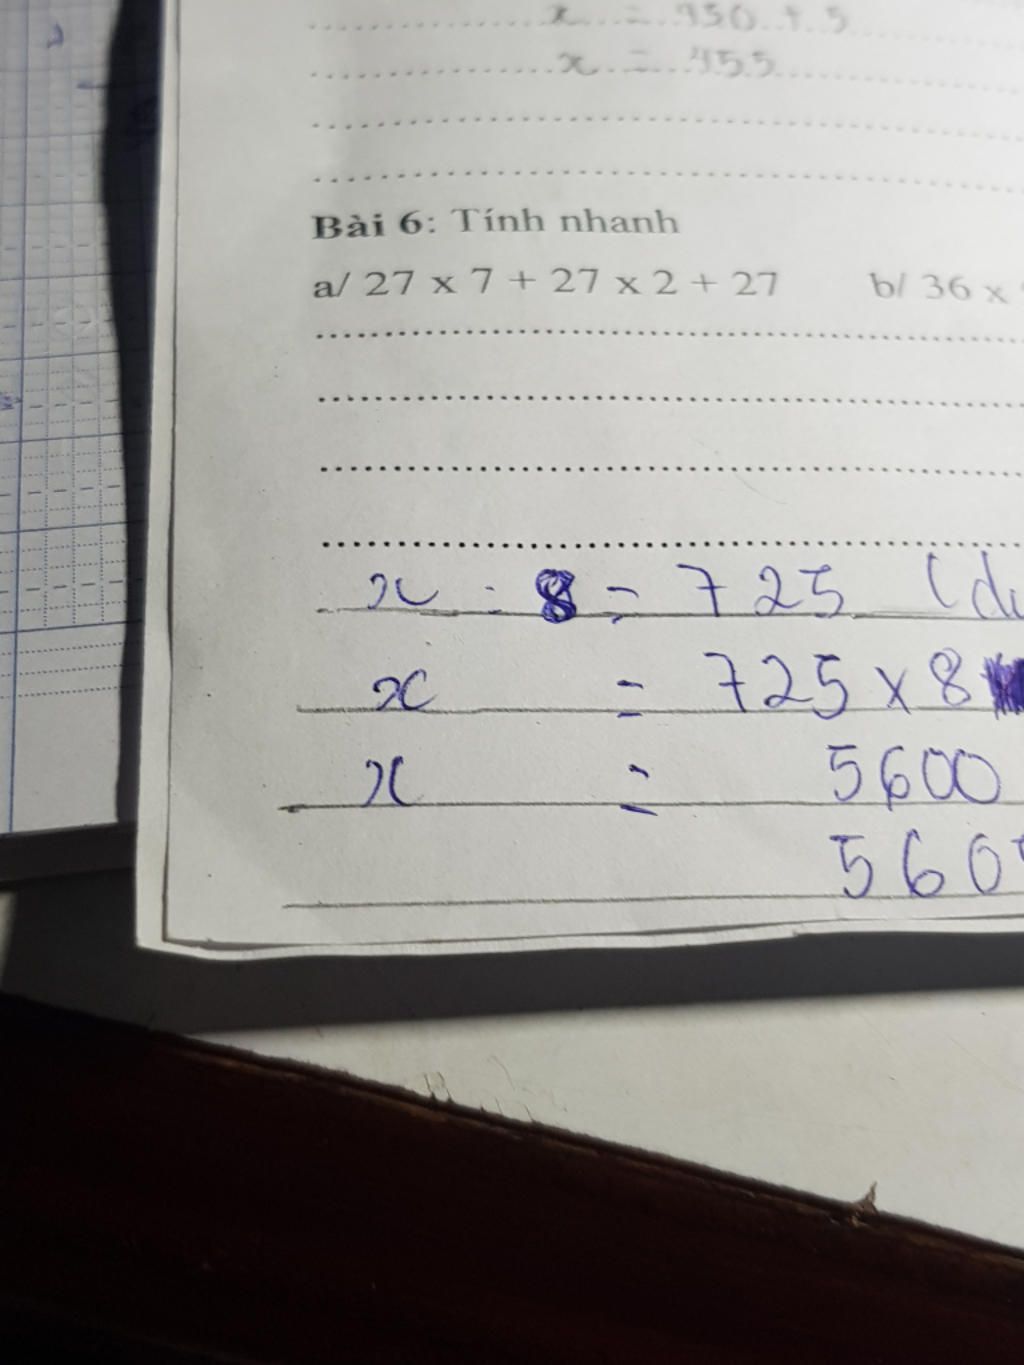 x = 450 + 5
x = 455
Bài 6: Tính nhanh
a/ 27 x 7 + 27 x 2 + 27 b/ 36 x
x : 8 = 725 (dư
x = 725 x 8
x = 5600
5605